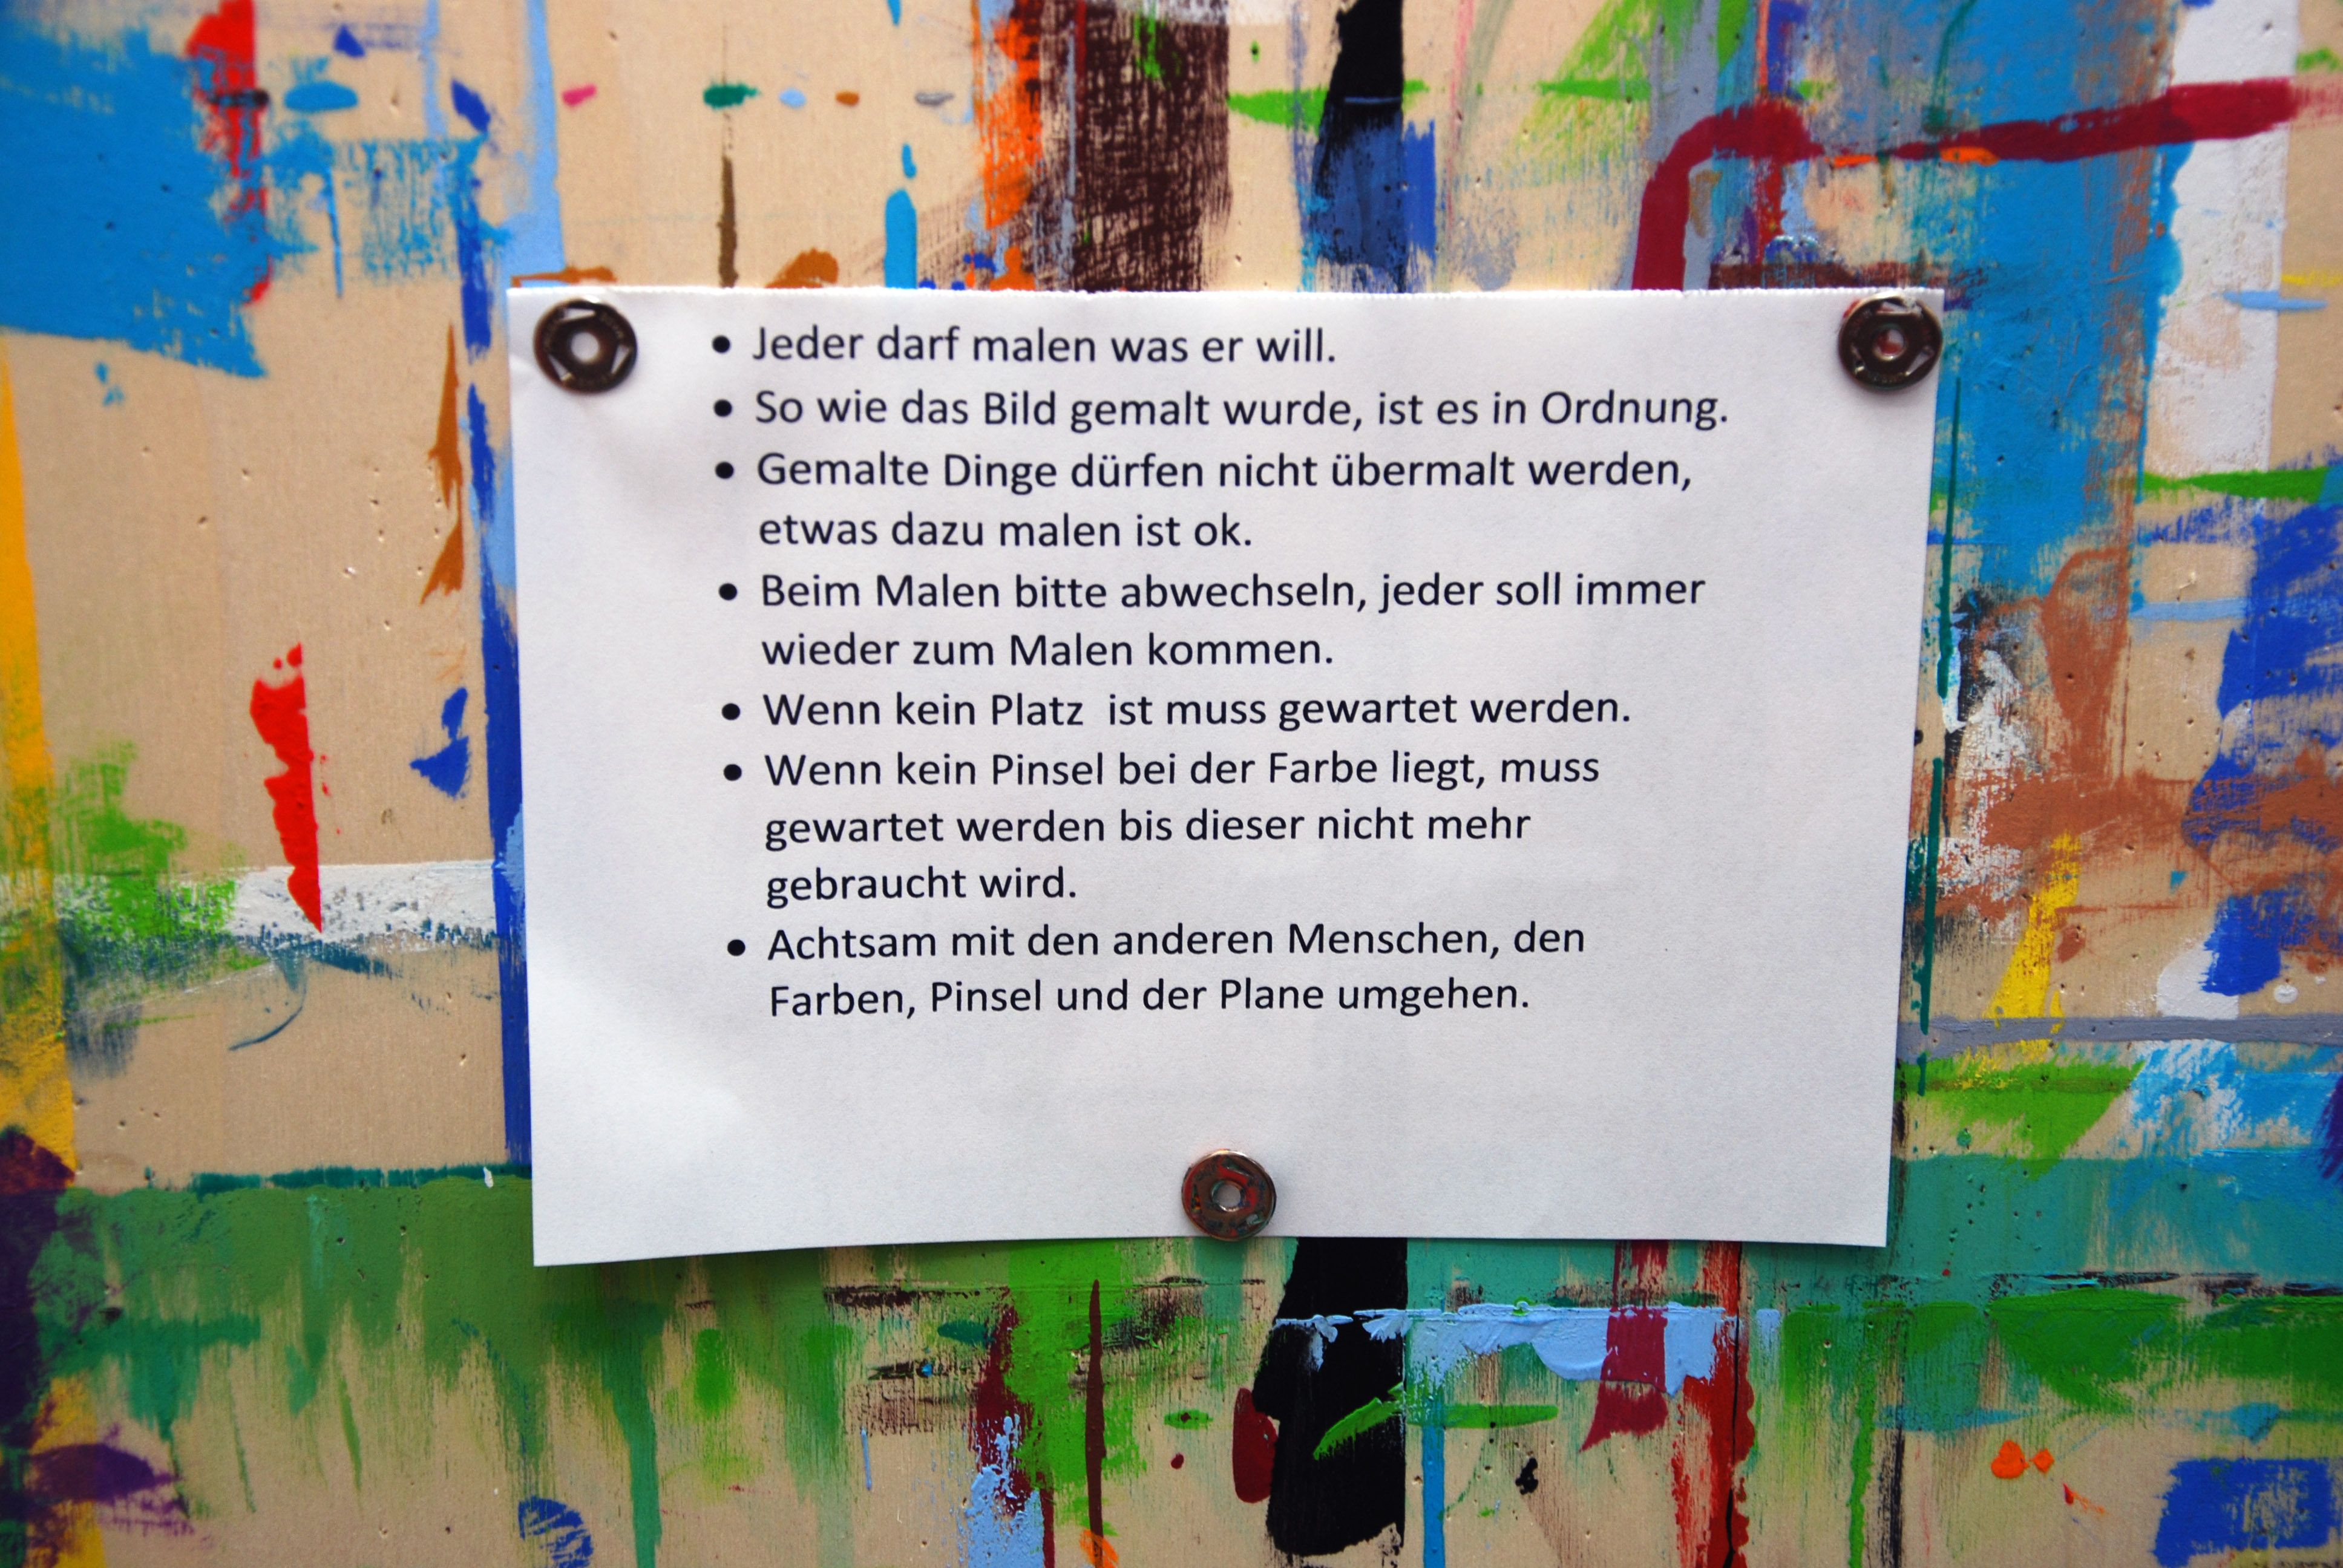 • Jeder darf malen was er will.
• So wie das Bild gemalt wurde, ist es in Ordnung.
• Gemalte Dinge dürfen nicht übermalt werden,
etwas dazu malen ist ok.
• Beim Malen bitte abwechseln, jeder soll immer
wieder zum Malen kommen.
• Wenn kein Platz  ist muss gewartet werden.
• Wenn kein Pinsel bei der Farbe liegt, muss
gewartet werden bis dieser nicht mehr
gebraucht wird.
• Achtsam mit den anderen Menschen, den
Farben, Pinsel und der Plane umgehen.